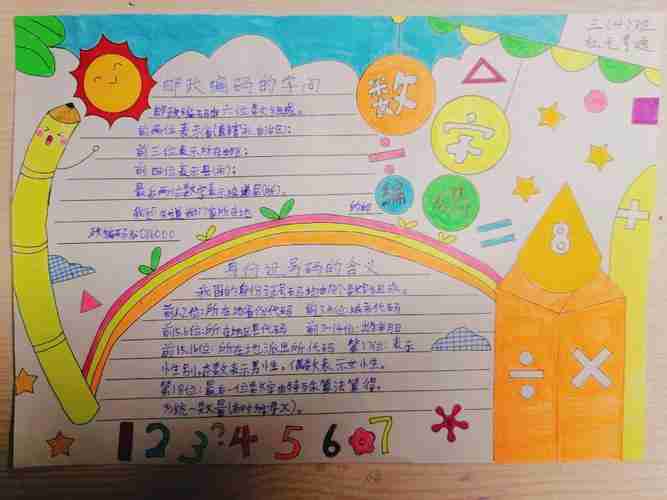 三(4)班
数
字
编
码
邮政编码的学问
邮政编码由六位数字组成。
前两位表示省(直辖市、自治区);
前三位表示所在邮区;
前四位表示县(市);
最后两位数字表示投递局(所)。
我还知道我们家所在地 的邮
政编码
身份证号码的含义
我国的身份证号码
前1、2位:所在地省份代码 前3、4位:城市代码
前5、6位:所在地区县代码 前7-14位:出生日
前15、16位:所在地派出所代码 第17位:表示
性别,奇数表示男性,偶数表示女性。
第18位:最后一位数字由特殊算法算得。
8
1 2 3 ? 4 5 6 7